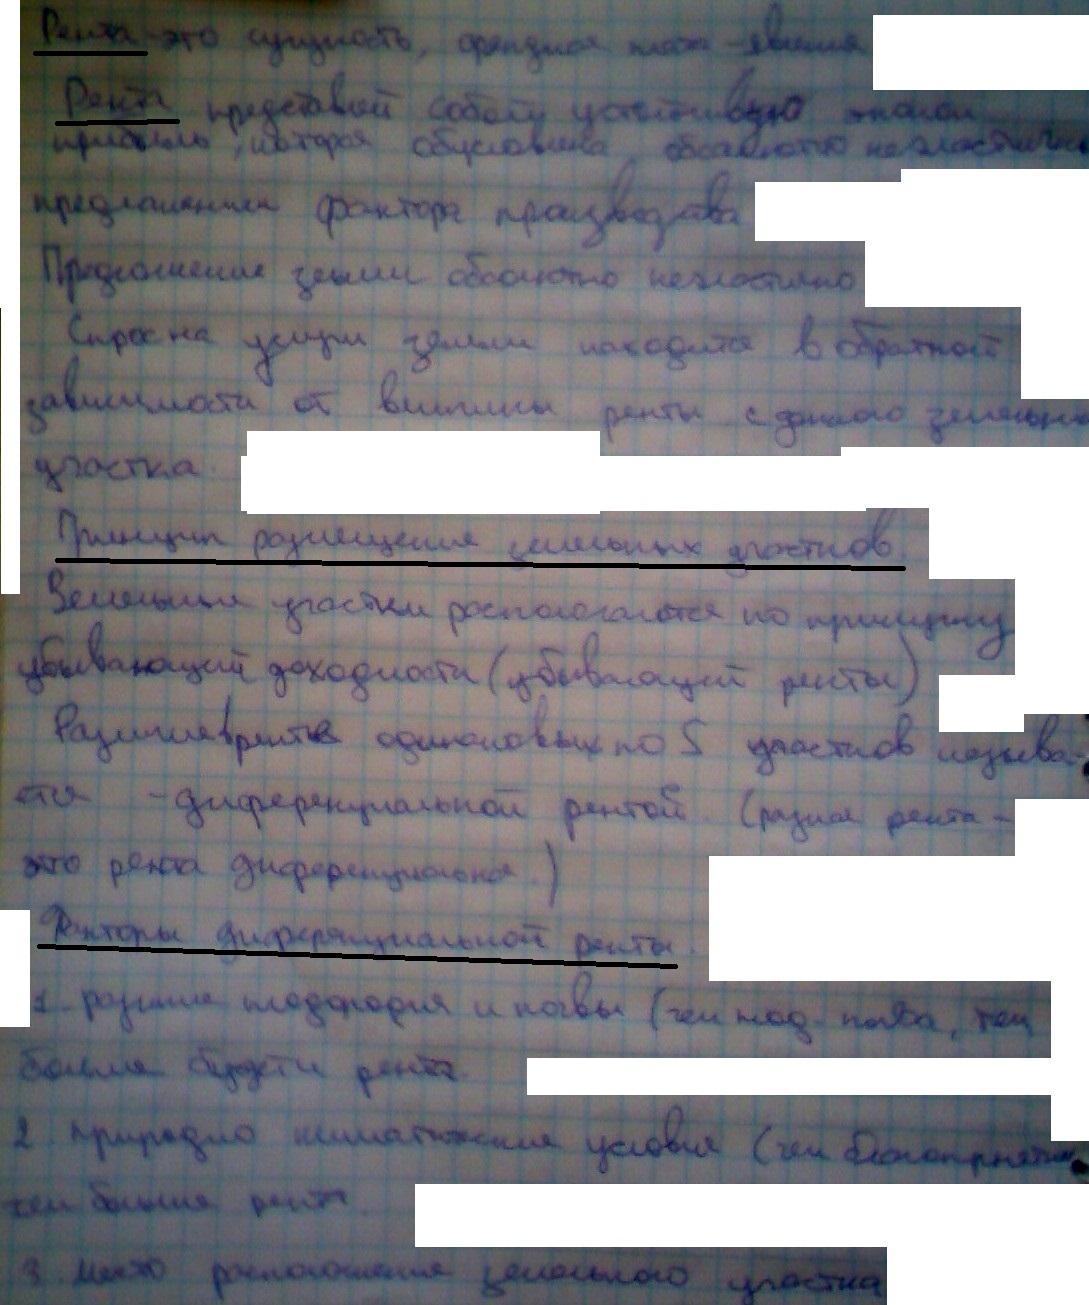 Рента - это сущность, арендная плата - явление
Рента представляй собой устойчивую эконом
прибыль, которая обусловлена абсолютно неэластичн
предложением фактора производства
Предложение земли абсолютно неэластично
Спрос на услуги земли находится в обратной
зависимости от величины ренты с данного земельного
участка.
Принцип размещения земельных участков.
Земельные участки распологаются по принципу
убывающий доходности (убывающий ренты)
Различие в ренте одинаковых по S участков называ-
ется - диференциальной рентой. (разная рента -
это рента диференциальная.)
Факторы диференциальной ренты.
1. разные плодородия и почвы (чем плод. почва, тем
больше будет рента.
2 природно климатические условия (чем благоприятн
тем больше рента.
3. место расположения земельного участка